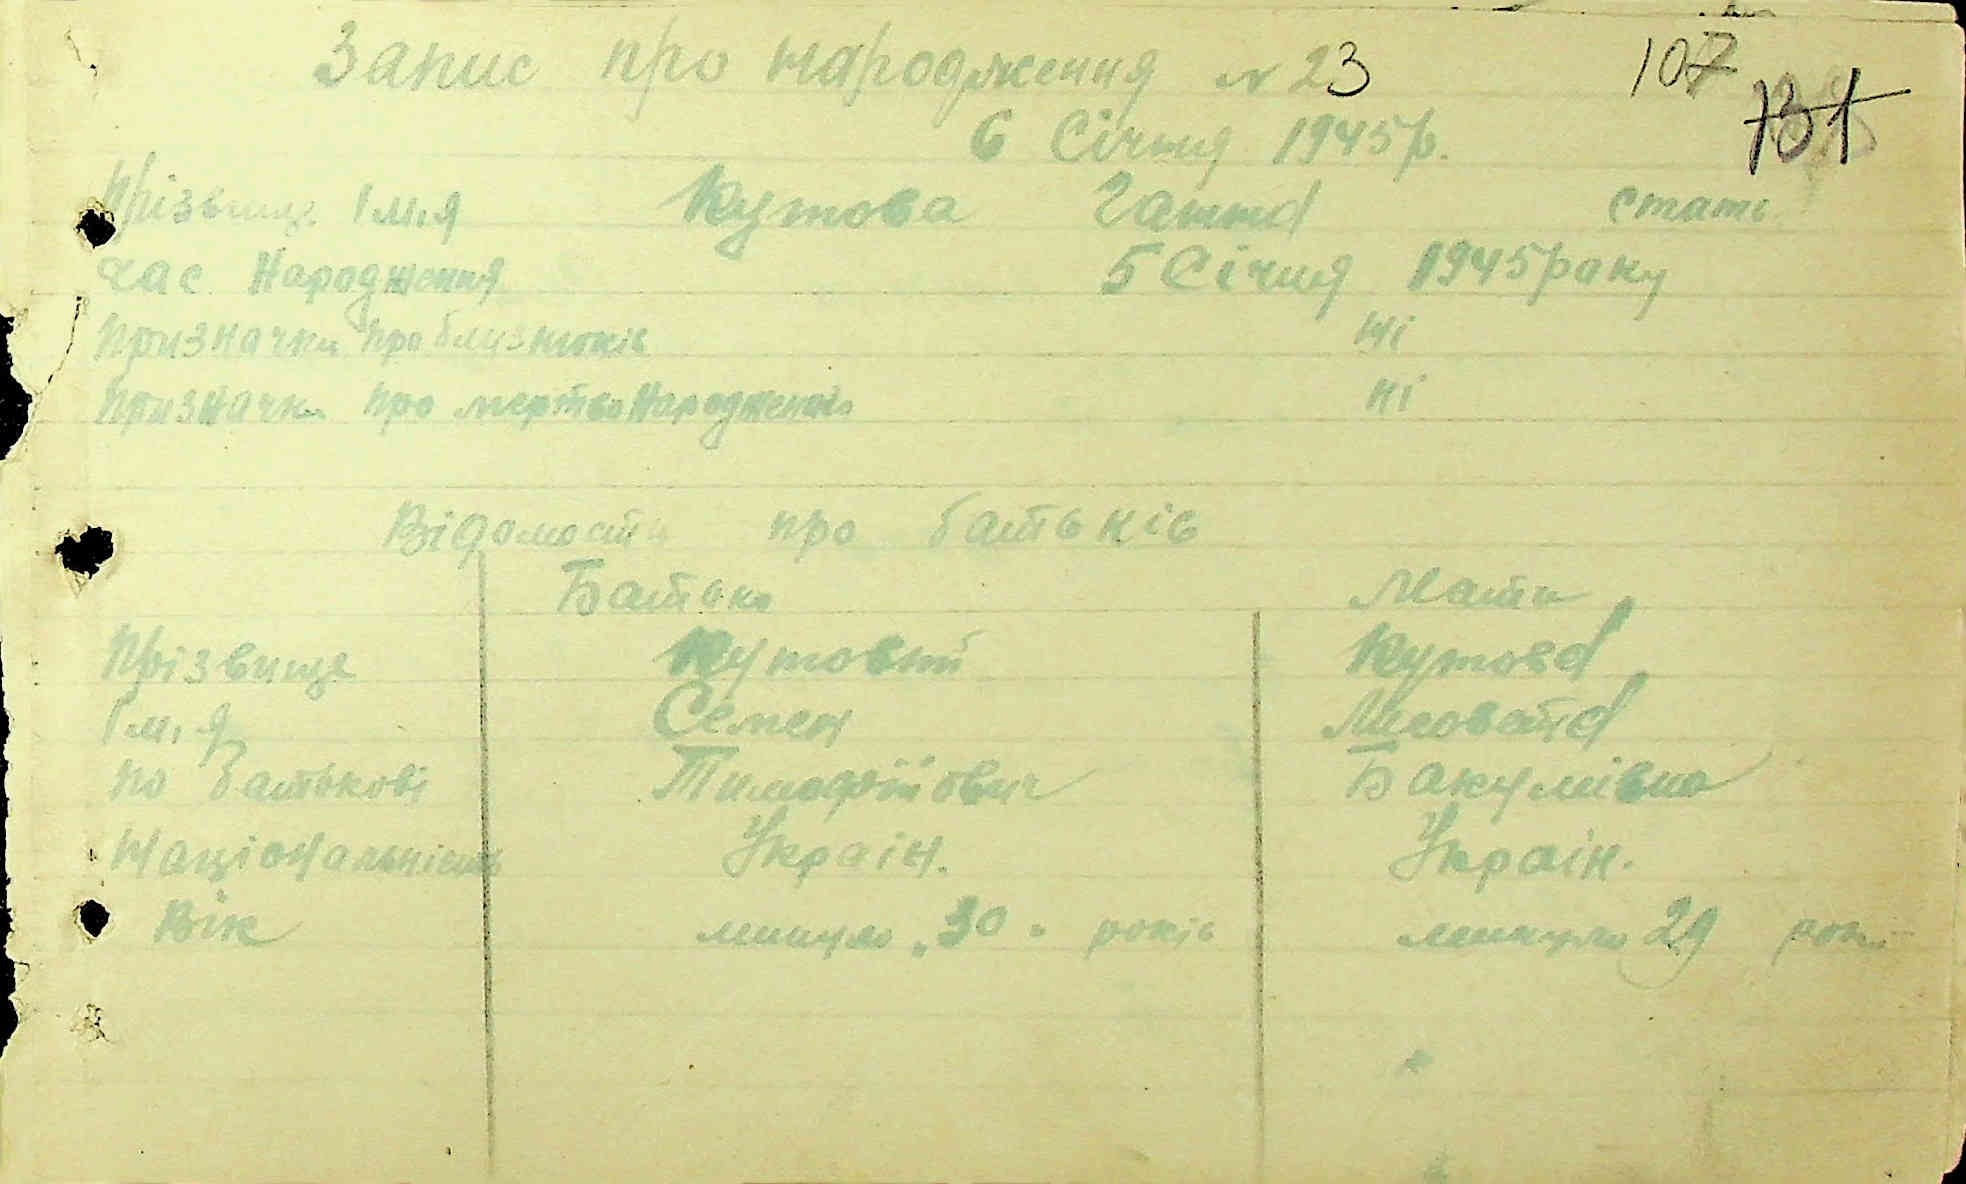 Запис про народження N 23 107
131
6 Січня 1945р.
Прізвище Ім.я Кутова Ганна стать
Час Народження 5 Січня 1945 року
Призначки про близнюків ні
Призначки про мертвонародженнів ні
Відомости про батьків
Батько Мати
Прізвище Кутовий Кутова
Ім.я Семен
по батькові Тимофійович Бакумівна
Національність Україн. Україн.
Вік минуло "30" років минуло 29 років